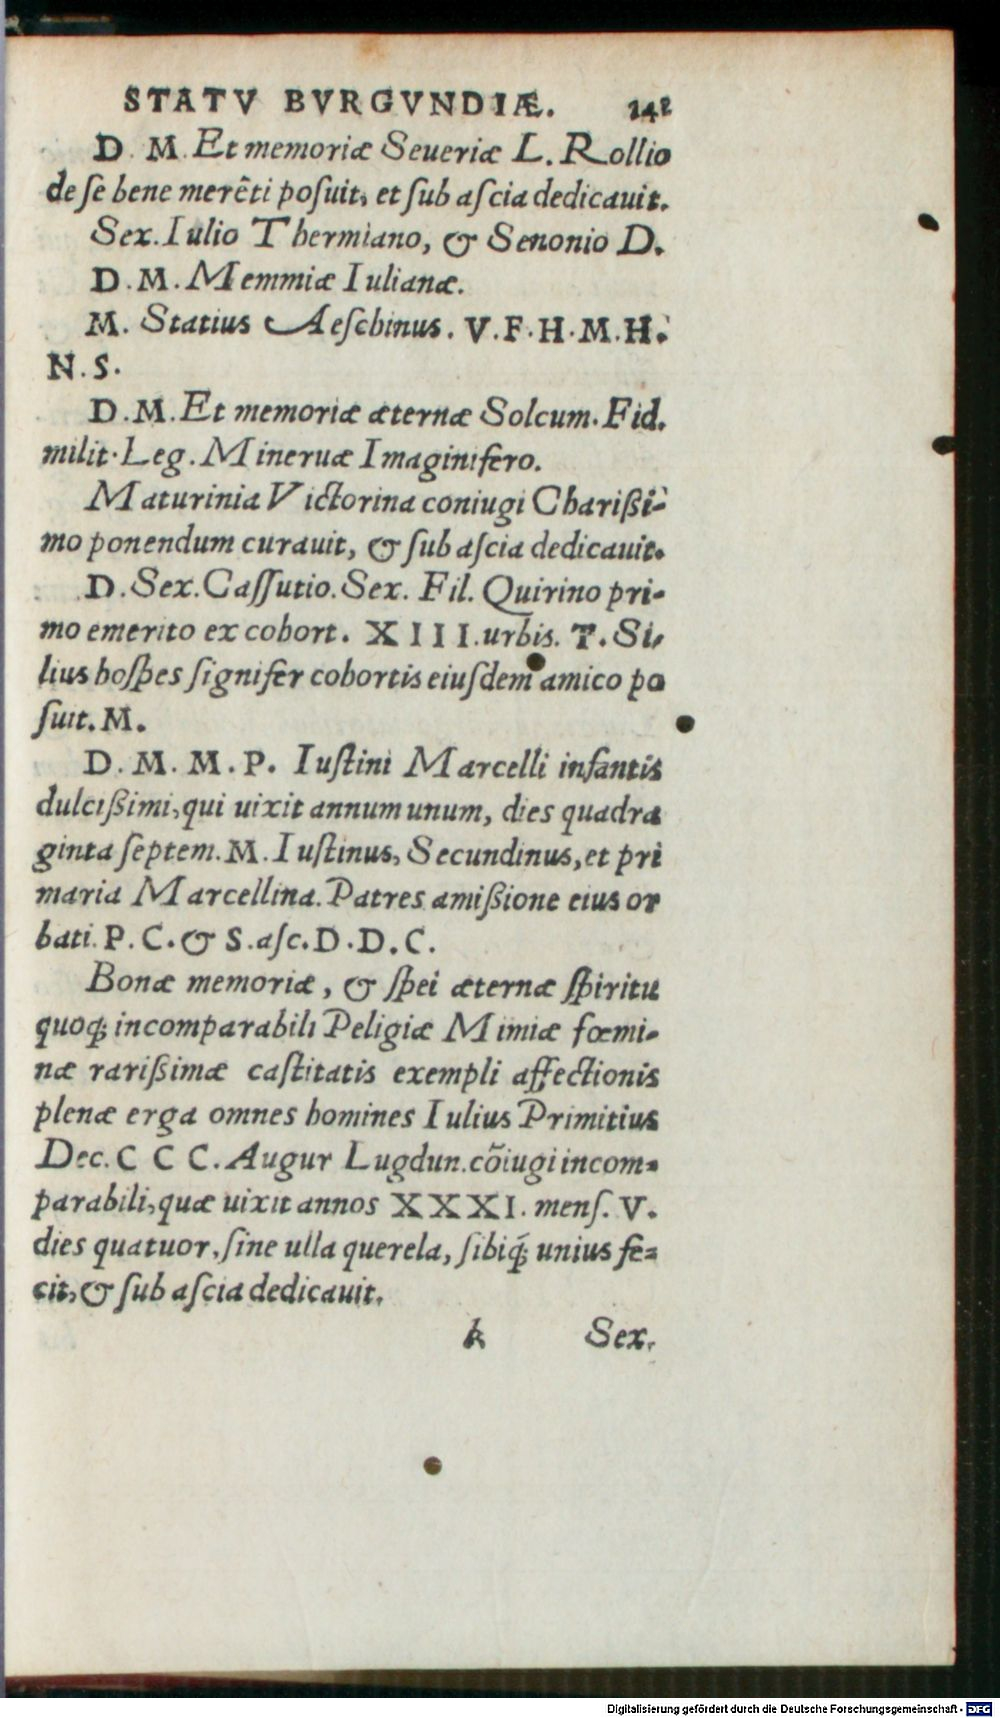 STATV BVRGVNDIÆ. 142
D. M. Et memoriæ Seueriæ L. Rollio
de ſe bene merẽti poſuit, et ſub aſcia dedicauit.
Sex. Iulio Thermiano, & Senonio D.
D. M. Memmiæ Iulianæ.
M. Statius Aeſchinus. V. F. H. M. H.
N. S.
D. M. Et memoriæ æternæ Solcum. Fid.
milit. Leg. Mineruæ Imaginifero.
Maturinia Victorina coniugi Charißi-
mo ponendum curauit, & ſub aſcia dedicauit.
D. Sex. Caſſutio. Sex. Fil. Quirino pri-
mo emerito ex cohort. XIII. urbis. T. Si-
lius hoſpes ſignifer cohortis eiuſdem amico po
ſuit. M.
D. M. M. P. Iuſtini Marcelli infantis
dulcißimi, qui uixit annum unum, dies quadra
ginta ſeptem. M. Iuſtinus, Secundinus, et pri
maria Marcellina. Patres amißione eius or
bati. P. C. & S. aſc. D. D. C.
Bonæ memoriæ, & ſpei æternæ ſpiritu
quoq; incomparabili Peligiæ Mimiæ fœmi-
næ rarißimæ caſtitatis exempli affectionis
plenæ erga omnes homines Iulius Primitius
Dec. C C C. Augur Lugdun. cõiugi incom-
parabili, quæ uixit annos XXXI. menſ. V.
dies quatuor, ſine ulla querela, ſibiq́; unius fe-
cit, & ſub aſcia dedicauit.
k Sex.
Digitalisierung gefördert durch die Deutsche Forschungsgemeinschaft - DFG